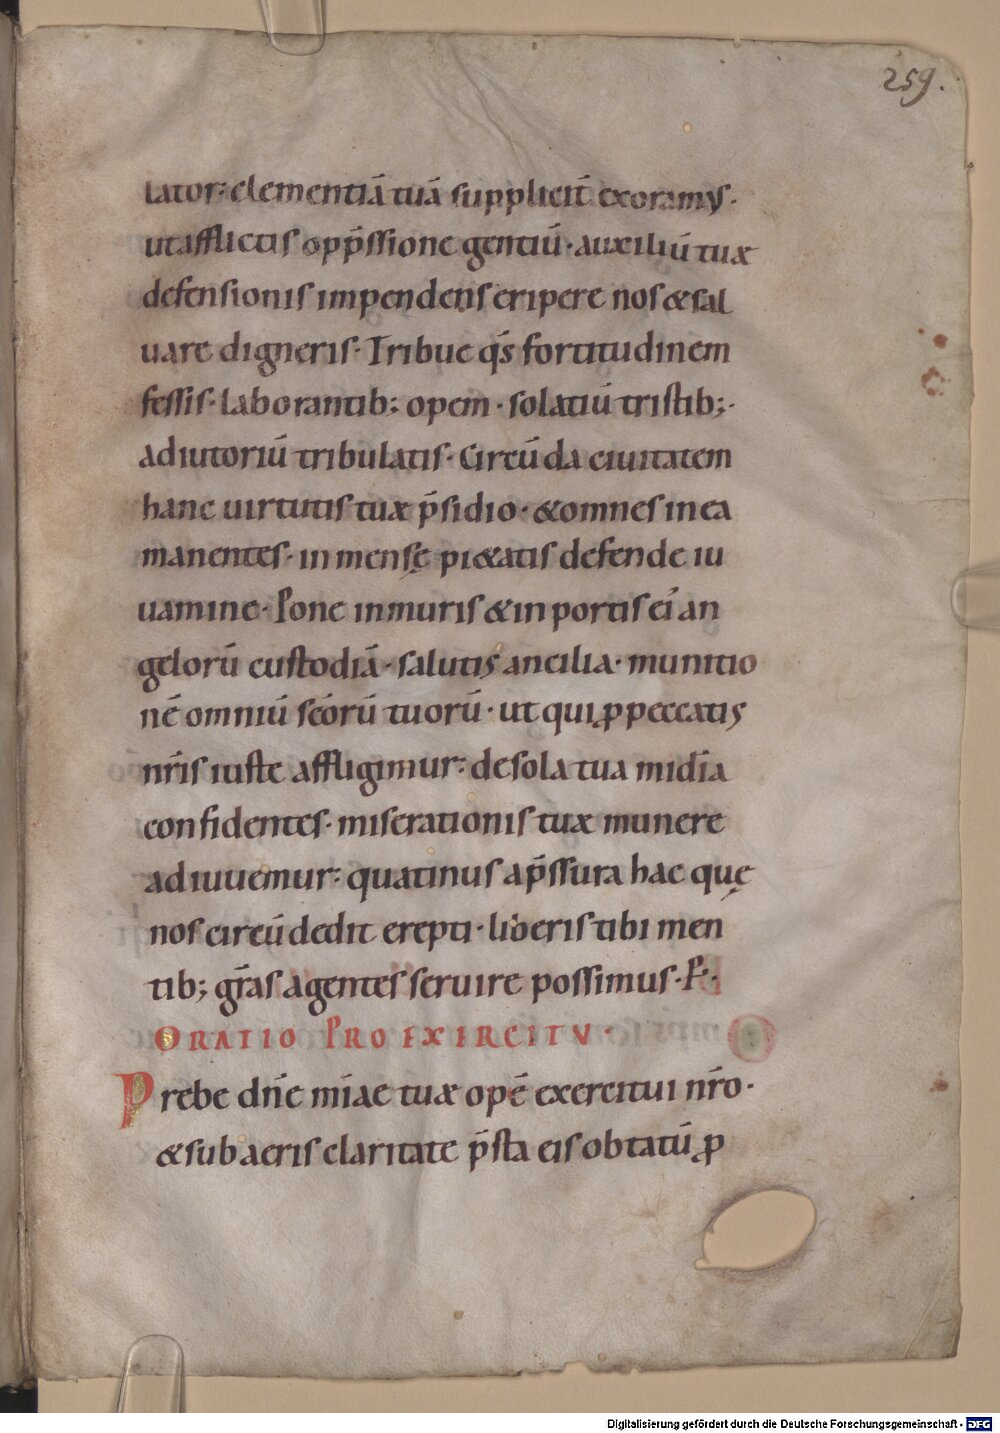 259.
lator: clementiā tuā suppliciť exoramus·
ut afflictis opp̄ssione gentiū· auxiliū tuæ
defensionis impendens eripere nos & sal
uare digneris· Tribue q̄s fortitudinem
fessis· laborantib; opem· solatiū tristib;·
adiutoriū tribulatis· Circū da ciuitatem
hanc uirtutis tuæ p̄sidio· & omnes in ea
manentes· in mensę pi&atis defende iu
uamine· Pone in muris & in portis ei̇ an
gelorū custodiā· salutis ancilia· munitio
nē omniū sc̄orū tuorū· ut qui ꝓ peccatis
nr̄is iuste affligimur: de sola tua mi̅dia
confidentes· miserationis tuæ munere
adiuuemur: quatinus a p̄ssura hac quę
nos circū dedit erepti· liberis tibi men
tib; gr̄as agentes seruire possimus· P̄·
ORATIO PRO EXERCITV·
Prebe dn̄e mi̅ae tuæ opē exercitui nr̄o·
& sub aeris claritate p̄sta eis obtatū ꝓ
Digitalisierung gefördert durch die Deutsche Forschungsgemeinschaft - DFG